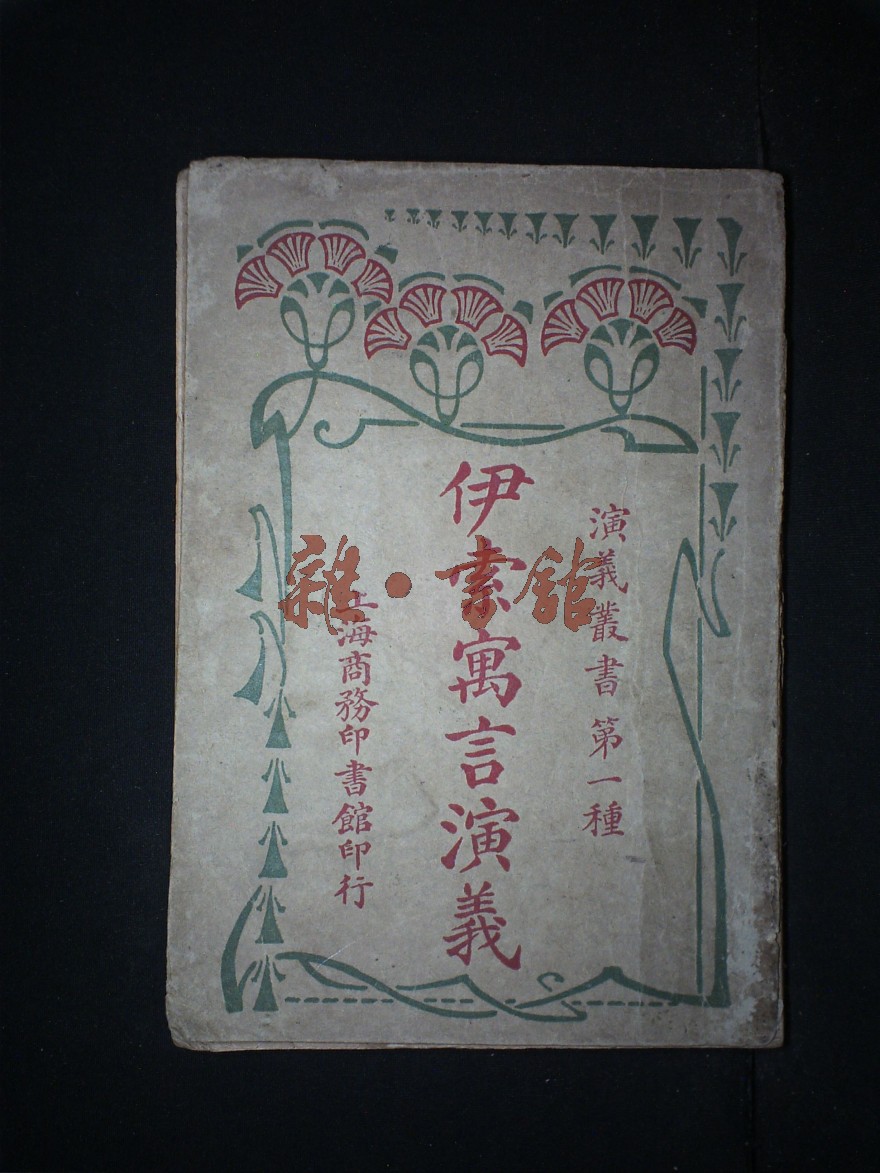 演義叢書第一種
伊索寓言演義
上海商務印書館印行
雜·書館